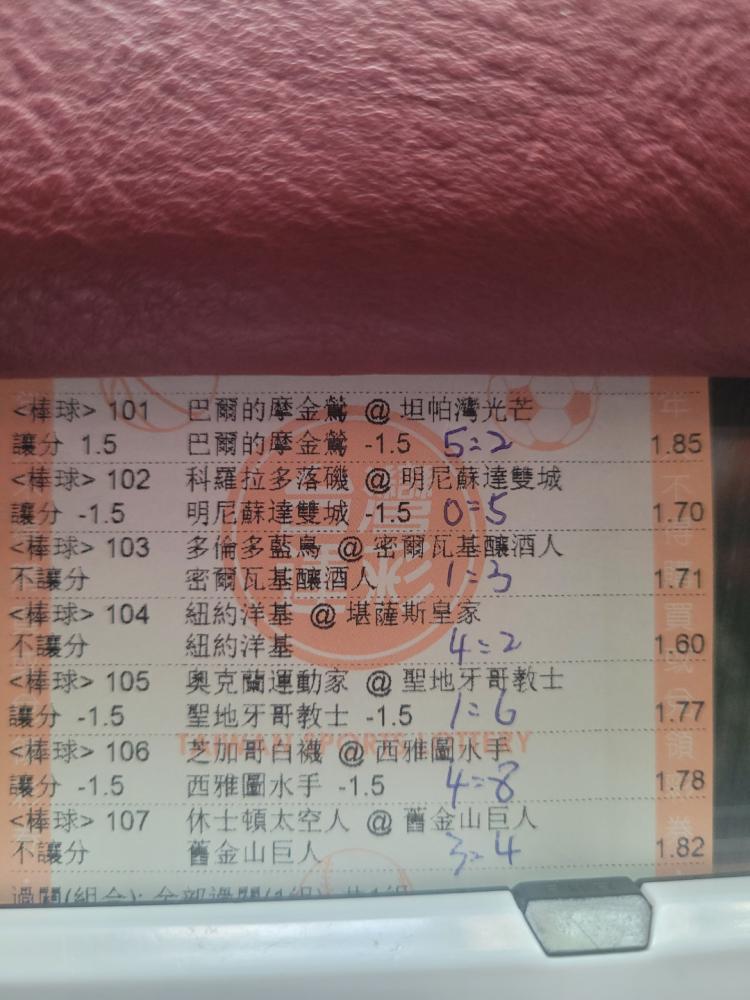 <棒球> 101 巴爾的摩金鶯 @ 坦帕灣光芒
讓分 1.5 巴爾的摩金鶯 -1.5 5=2 1.85
<棒球> 102 科羅拉多落磯 @ 明尼蘇達雙城
讓分 -1.5 明尼蘇達雙城 -1.5 0=5 1.70
<棒球> 103 多倫多藍鳥 @ 密爾瓦基釀酒人
不讓分 密爾瓦基釀酒人 1=3 1.71
<棒球> 104 紐約洋基 @ 堪薩斯皇家
不讓分 紐約洋基 4=2 1.60
<棒球> 105 奧克蘭運動家 @ 聖地牙哥教士
讓分 -1.5 聖地牙哥教士 -1.5 1=6 1.77
TAIWAN SPORTS LOTTERY
<棒球> 106 芝加哥白襪 @ 西雅圖水手
讓分 -1.5 西雅圖水手 -1.5 4=8 1.78
<棒球> 107 休士頓太空人 @ 舊金山巨人
不讓分 舊金山巨人 3=4 1.82
過關(組合): 全部過關(1組), 共1組
台灣
運彩